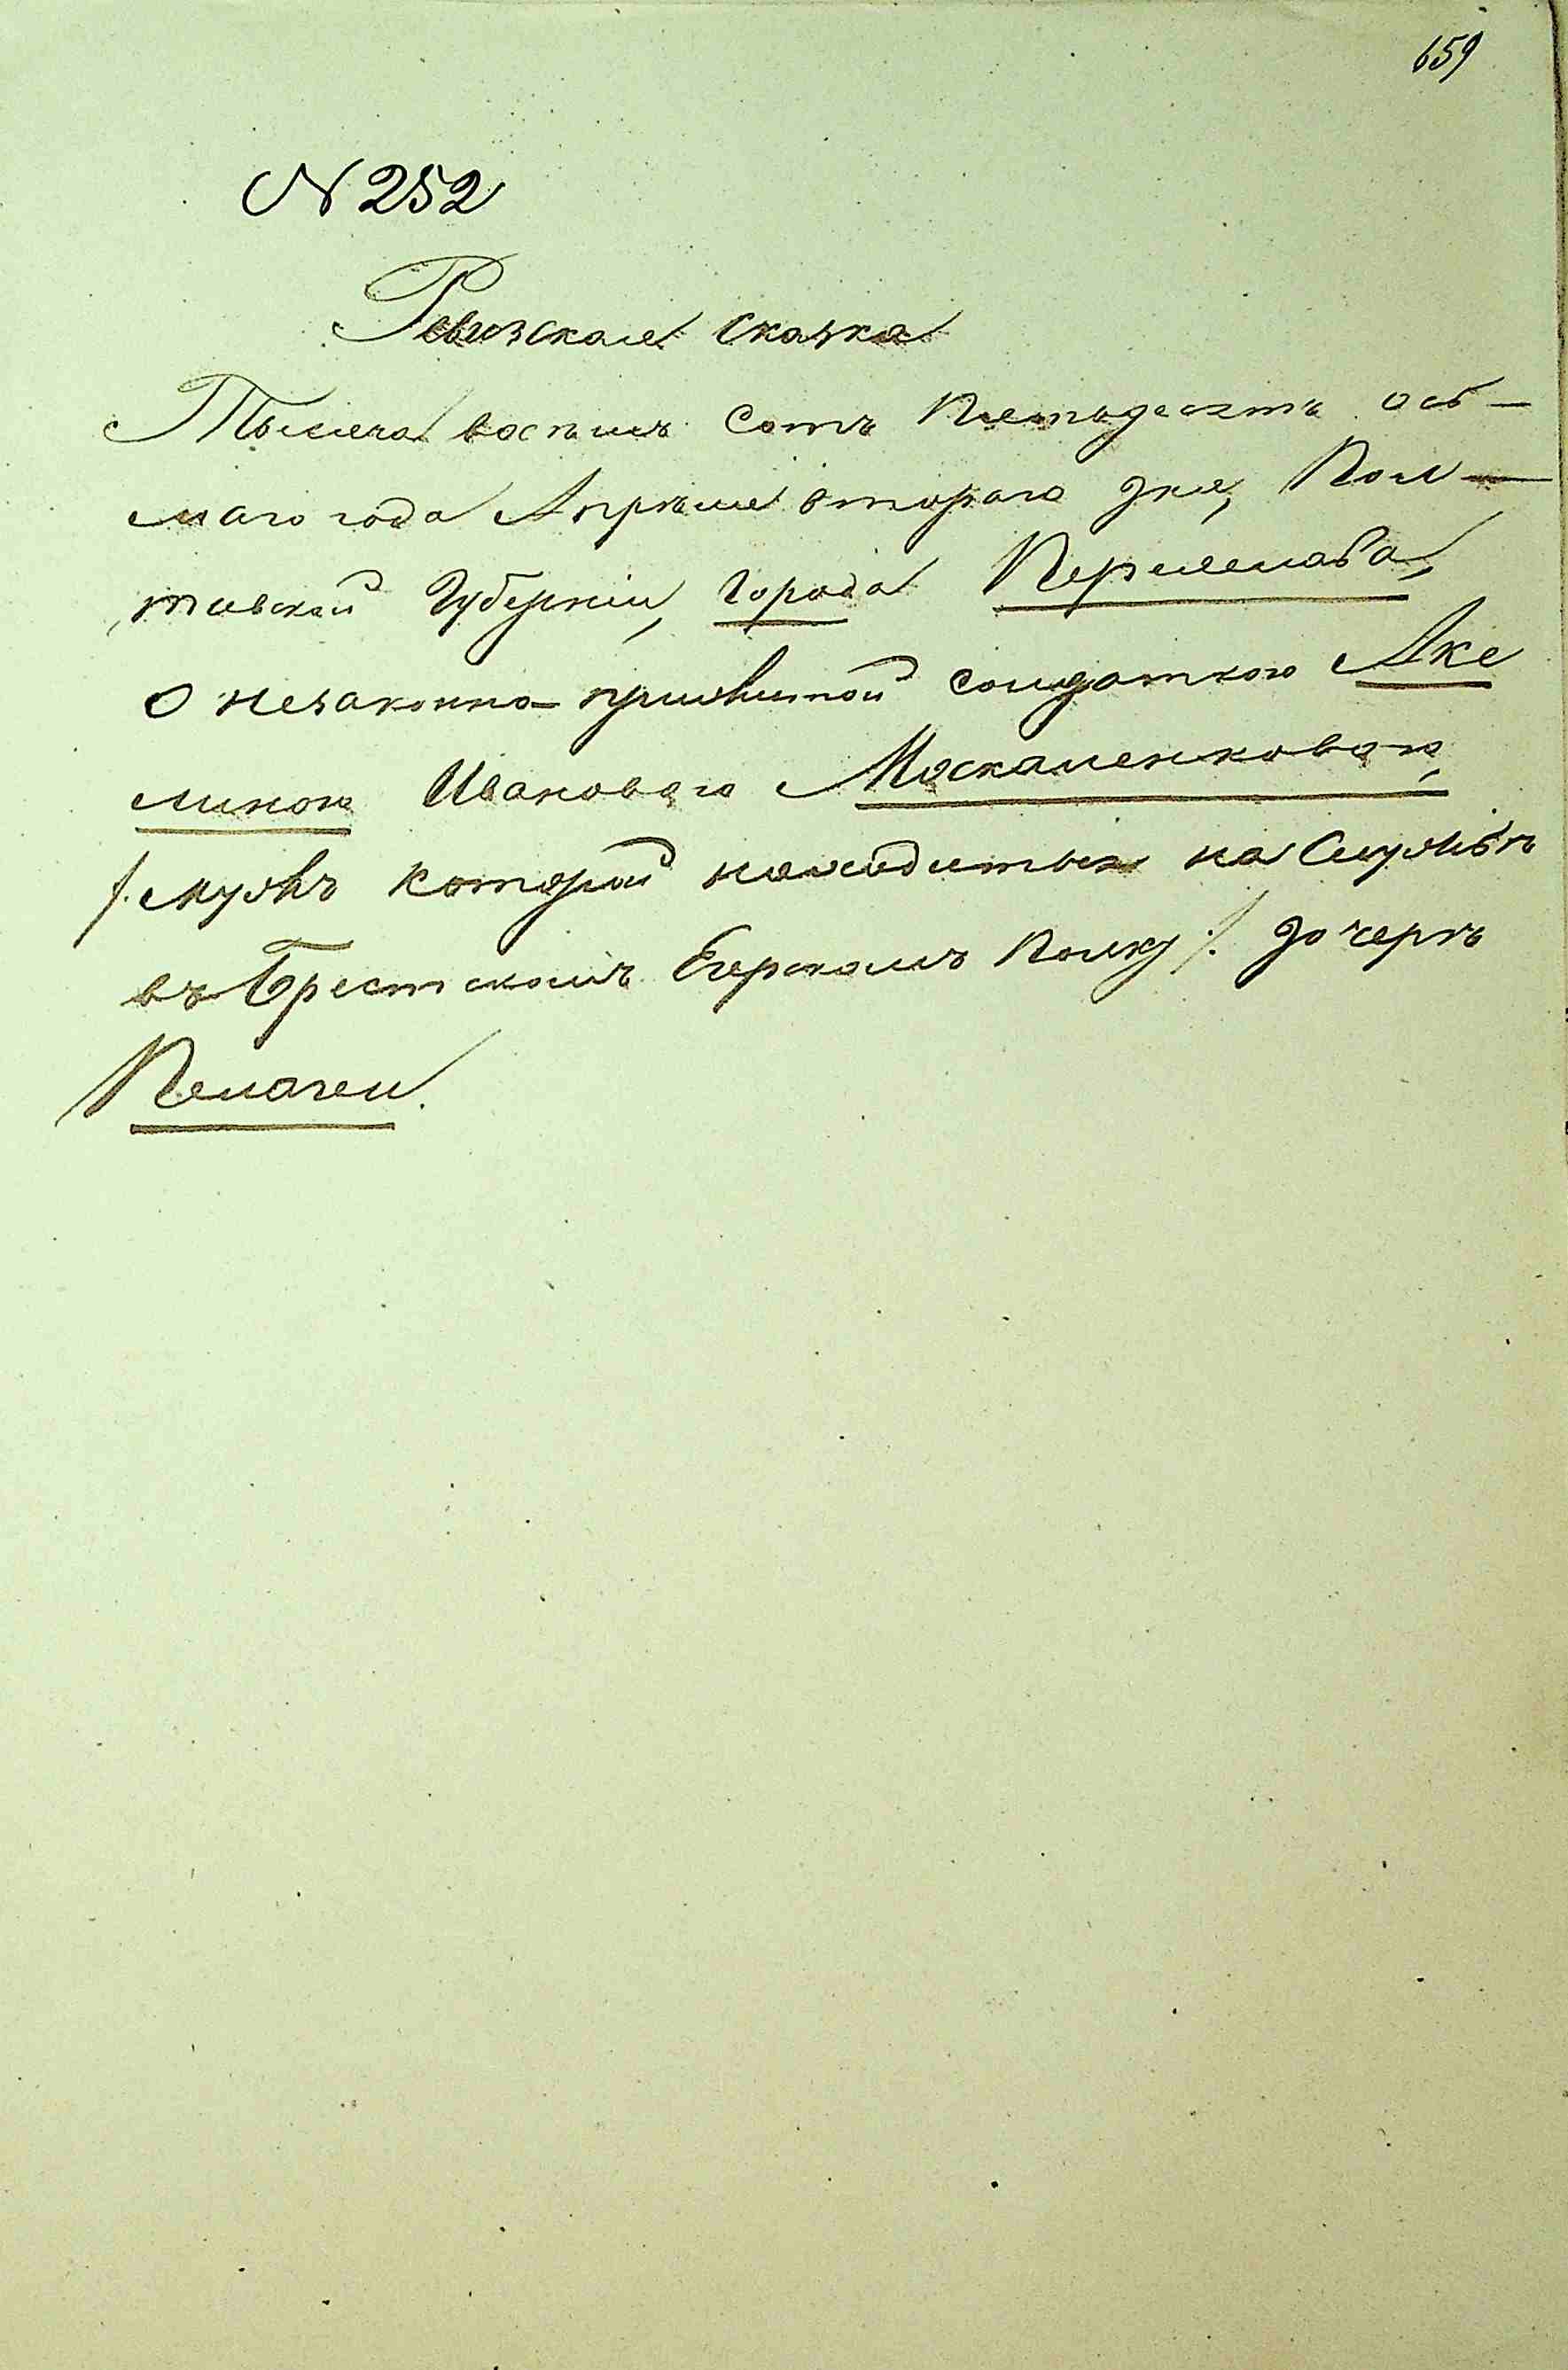 659
N 252
Ревизская сказка
Тысяча восѣмь сотъ Пятьдесятъ ось-
маго года Апрѣля втораго дня, Пол-
тавской Губерніи, города Переяслава,
о незаконно-прижитой солдаткою Аке
линою Ивановою Москаленковою,
/. мужъ которой находится на службѣ
въ Брестскомъ Егерскомъ Полку ./. дочерѣ
Пелагеи.